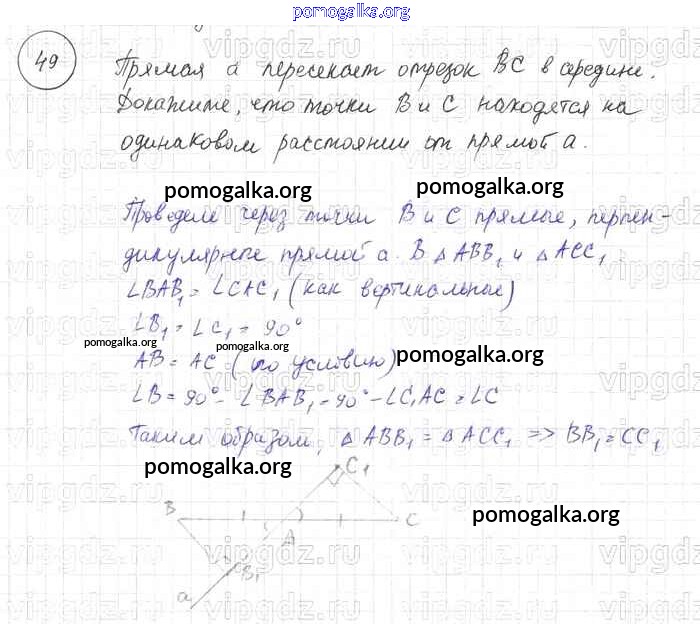 pomogalka.org
49
Прямая а пересекает отрезок ВС в середине.
Докажите, что точки В и С находятся на
одинаковом расстоянии от прямой а.
pomogalka.org pomogalka.org
Проведем через точки В и С прямые, перпен-
дикулярные прямой а. В △ABB₁ и △ACC₁
∠BAB₁ = ∠CAC₁ (как вертикальные)
∠B₁ = ∠C₁ = 90°
pomogalka.org pomogalka.org
AB = AC (по условию) pomogalka.org
∠B = 90° - ∠BAB₁ = 90° - ∠C₁AC = ∠C
Таким образом, △ABB₁ = △ACC₁ => BB₁ = CC₁
pomogalka.org
C₁
B
C
A
pomogalka.org
B₁
a
vipgdz.ru